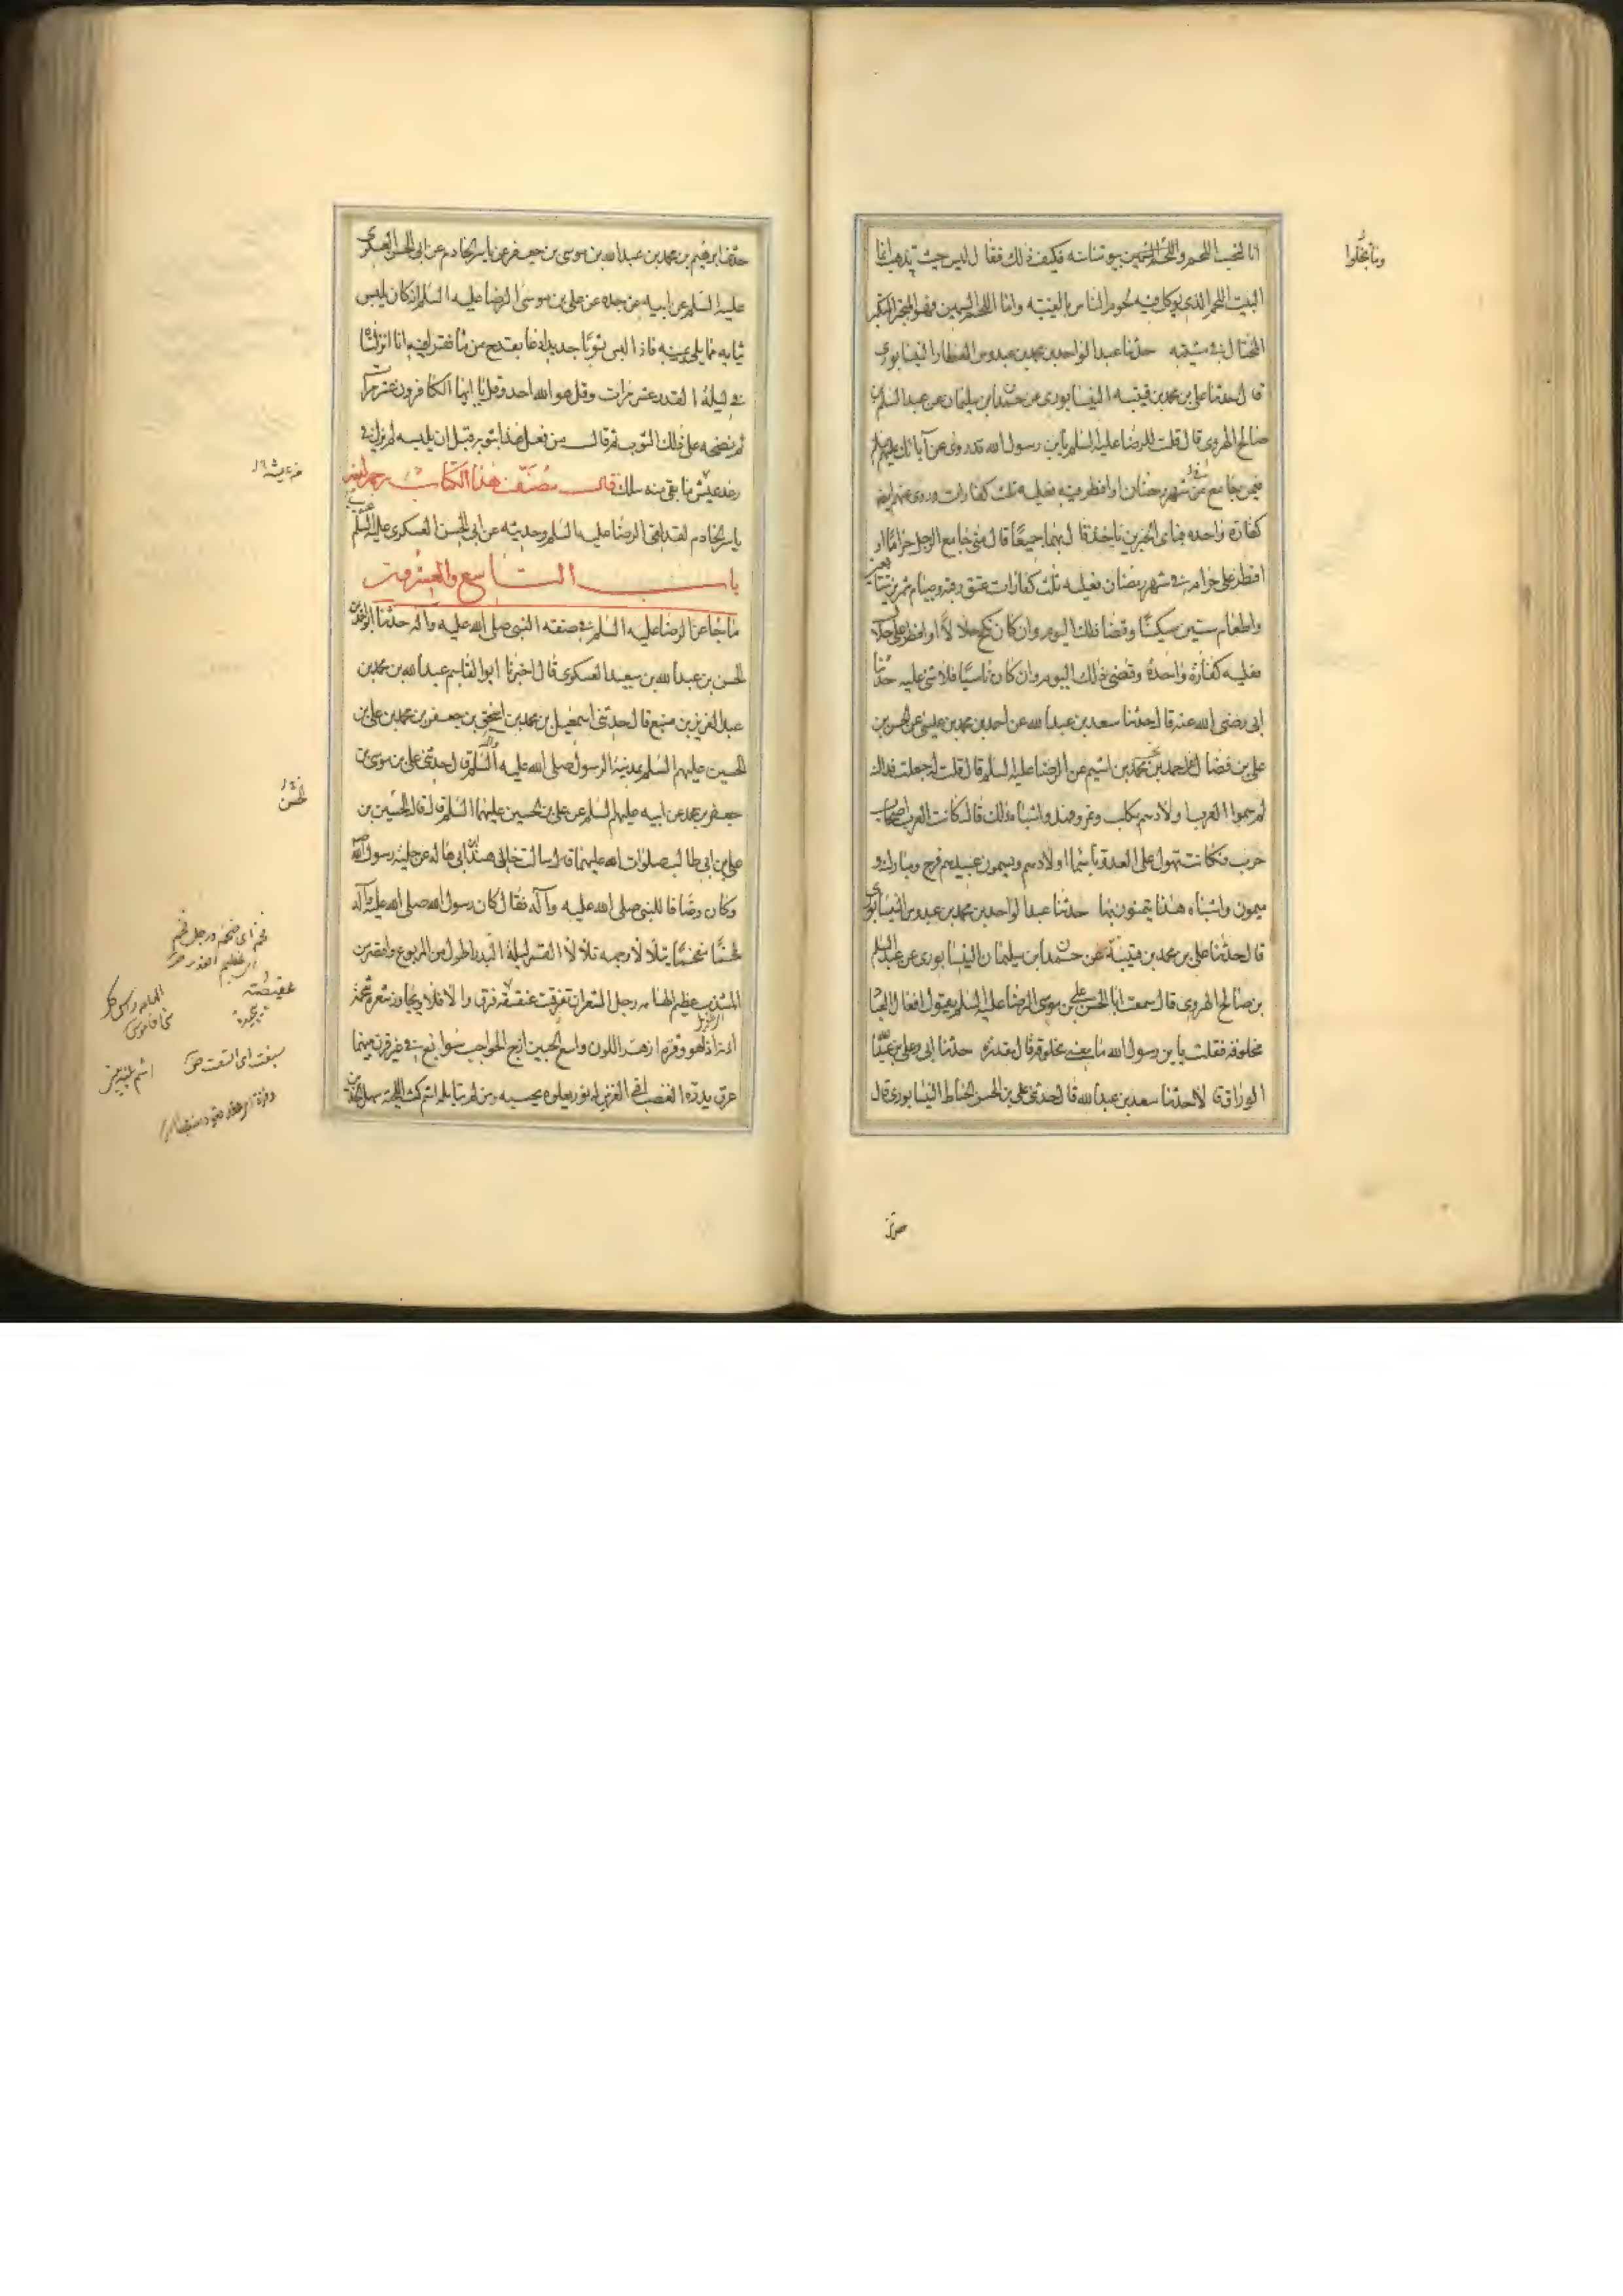 انا لنحب اللحم وما تخلوا بيوتنا منه فكيف ذلك فقال ليس حيث تذهب انما
البيت اللحم الذي يوكل فيه لحوم الناس بالغيبة واما اللحم السمين فهو المتجبر المتكبر
المختال في مشيته حدثنا عبد الواحد بن محمد بن عبدوس العطار النيسابوري
قال حدثنا علي بن محمد بن قتيبة النيسابوري عن حمدان بن سليمان عن عبد السلام بن
صالح الهروي قال قلت للرضا عليه السلم يابن رسول الله قد روي عن آبائك عليهم السلم
فيمن جامع في شهر رمضان او افطر فيه فعليه ثلث كفارات وروي عنهم ايضا
كفارة واحدة فباي الخبرين ناخذ قال بهما جميعا قال متى جامع الرجل حراما او
افطر على حرام في شهر رمضان فعليه ثلث كفارات عتق رقبة وصيام شهرين متتابعين
واطعام ستين مسكينا وقضا ذلك اليوم وان كان نكح حلالا او افطر على حلال
فعليه كفارة واحدة وقضى ذلك اليوم وان كان ناسيا فلا شئ عليه حدثنا
ابي رضي الله عنه قال حدثنا سعد بن عبد الله عن احمد بن محمد بن عيسى عن الحسن بن
علي بن فضال عن احمد بن محمد بن اشيم عن الرضا عليه السلم قال قلت له جعلت فداك
لم سموا العرب اولادهم بكلب ونمر وفهد واشباه ذلك قال كانت العرب اصحاب
حرب وكانت تهول على العدو باسما اولادهم ويسمون عبيدهم فرج ومبارك و
ميمون واشباه هذا يتيمنون بها حدثنا عبد الواحد بن محمد بن عبدوس النيسابوري
قال حدثنا علي بن محمد بن قتيبة عن حمدان بن سليمان النيسابوري عن عبد السلم
بن صالح الهروي قال سمعت ابا الحسن علي بن موسى الرضا عليه السلم يقول افعال العباد
مخلوقة فقلت يابن رسول الله ما معنى مخلوقة قال مقدرة حدثنا ابي وعلي بن عبد الله
الوراق قالا حدثنا سعد بن عبد الله قال حدثني علي بن الحسن الخياط النيسابوري قال
وما تخلوا
حدثنا ابرهيم بن محمد بن عبد الله بن موسى بن جعفر عن ياسر الخادم عن ابي الحسن العسكري
عليه السلم عن ابيه عن جده عن علي بن موسى الرضا عليه السلم انه كان يلبس
ثيابه مما يلي يمينه فاذا لبس ثوبا جديدا دعا بقدح من ما فقرا فيه انا انزلناه
في ليلة القدر عشر مرات وقل هو الله احد وقل يا ايها الكافرون عشر مرات
ثم نضحه على ذلك الثوب ثم قال من فعل هذا بثوبه قبل ان يلبسه لم يزل في
رغد عيش ما بقي منه سلك قال مصنف هذا الكتاب رحمه الله
ياسر الخادم لقد لقى الرضا عليه السلم وحديثه عن ابي الحسن العسكري عليه السلم غريب
باب التاسع والعشرون
ما جا عن الرضا عليه السلم في صفة النبي صلى الله عليه وآله حدثنا ابو احمد بن
الحسن بن عبد الله بن سعيد العسكري قال اخبرنا ابو القاسم عبد الله بن محمد بن
عبد العزيز بن منيع قال حدثني اسمعيل بن محمد بن اسحق بن جعفر بن محمد بن علي بن
الحسين عليهم السلم بمدينة الرسول صلى الله عليه وآله السلم قال حدثني علي بن موسى بن
جعفر بن محمد عن ابيه عليهم السلم عن علي بن الحسين عليهما السلم قال قال الحسين بن
علي بن ابي طالب صلوات الله عليهما قال سالت خالي هند بن ابي هاله عن حلية رسول الله
وكان وصافا للنبي صلى الله عليه وآله فقال كان رسول الله صلى الله عليه وآله
فخما مفخما يتلألأ وجهه تلألأ القمر ليلة البدر اطول من المربوع واقصر من
المشذب عظيم الهامه رجل الشعر ان تفرقت عقيقته فرق والا فلا يجاوز شعره شحمة
اذنيه اذا هو وفره ازهر اللون واسع الجبين ازج الحواجب سوابغ في غير قرن بينهما
عرق يدره الغضب اقنى العرنين له نور يعلوه يحسبه من لم يتامله اشم كث اللحية سهل الخدين
من عيشه
الحسن
فخم اى ضخم ورجل فخم
اى عظيم القدر
عقيصته
سبغت اى اتسعت